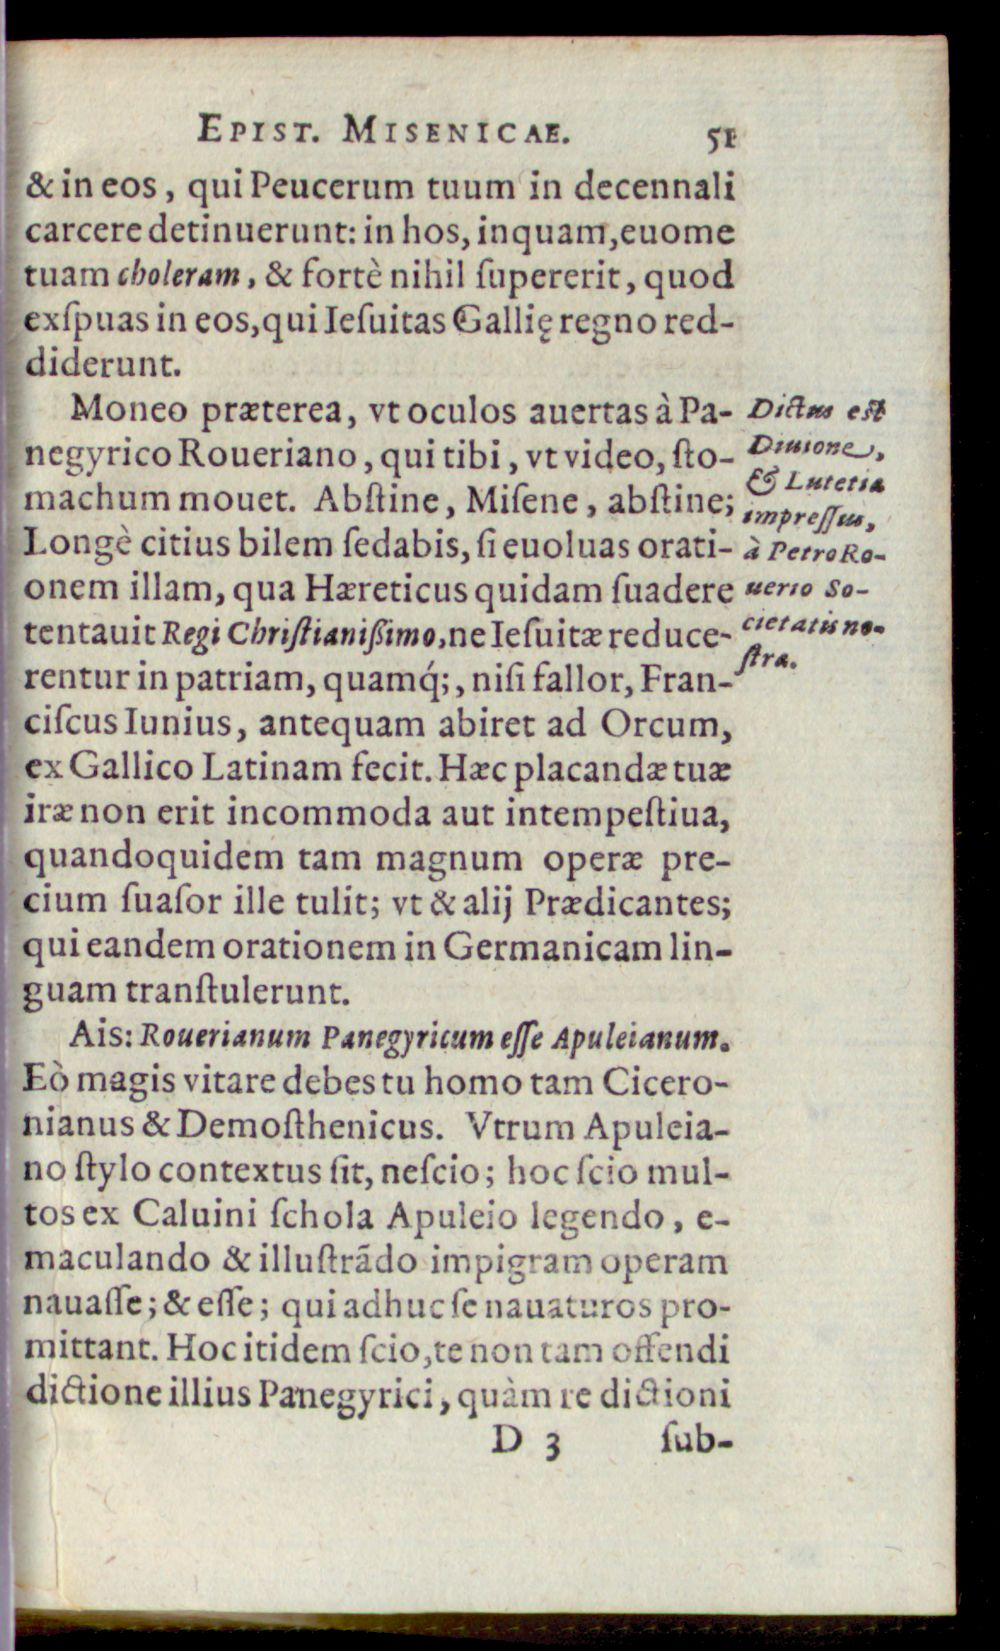 EPIST. MISENICAE. 51
& in eos, qui Peucerum tuum in decennali
carcere detinuerunt: in hos, inquam, euome
tuam choleram, & fortè nihil ſupererit, quod
exſpuas in eos, qui Ieſuitas Gallię regno red-
diderunt.
Moneo præterea, vt oculos auertas à Pa-
negyrico Roueriano, qui tibi, vt video, ſto-
machum mouet. Abſtine, Miſene, abſtine;
Longè citius bilem ſedabis, ſi euoluas orati-
onem illam, qua Hæreticus quidam ſuadere
tentauit Regi Chriſtianißimo, ne Ieſuitæ reduce-
rentur in patriam, quamq́;, niſi fallor, Fran-
ciſcus Iunius, antequam abiret ad Orcum,
ex Gallico Latinam fecit. Hæc placandæ tuæ
iræ non erit incommoda aut intempeſtiua,
quandoquidem tam magnum operæ pre-
cium ſuaſor ille tulit; vt & alij Prædicantes;
qui eandem orationem in Germanicam lin-
guam tranſtulerunt.
Dictus eſt
Diuione,
& Lutetia
impreſſus,
à Petro Ro-
uerio So-
cietatis no-
ſtra.
Ais: Rouerianum Panegyricum eſſe Apuleianum.
Eò magis vitare debes tu homo tam Cicero-
nianus & Demoſthenicus. Vtrum Apuleia-
no ſtylo contextus ſit, neſcio; hoc ſcio mul-
tos ex Caluini ſchola Apuleio legendo, e-
maculando & illuſtrãdo impigram operam
nauaſſe; & eſſe; qui adhuc ſe nauaturos pro-
mittant. Hoc itidem ſcio, te non tam offendi
dictione illius Panegyrici, quàm re dictioni
D 3 ſub-